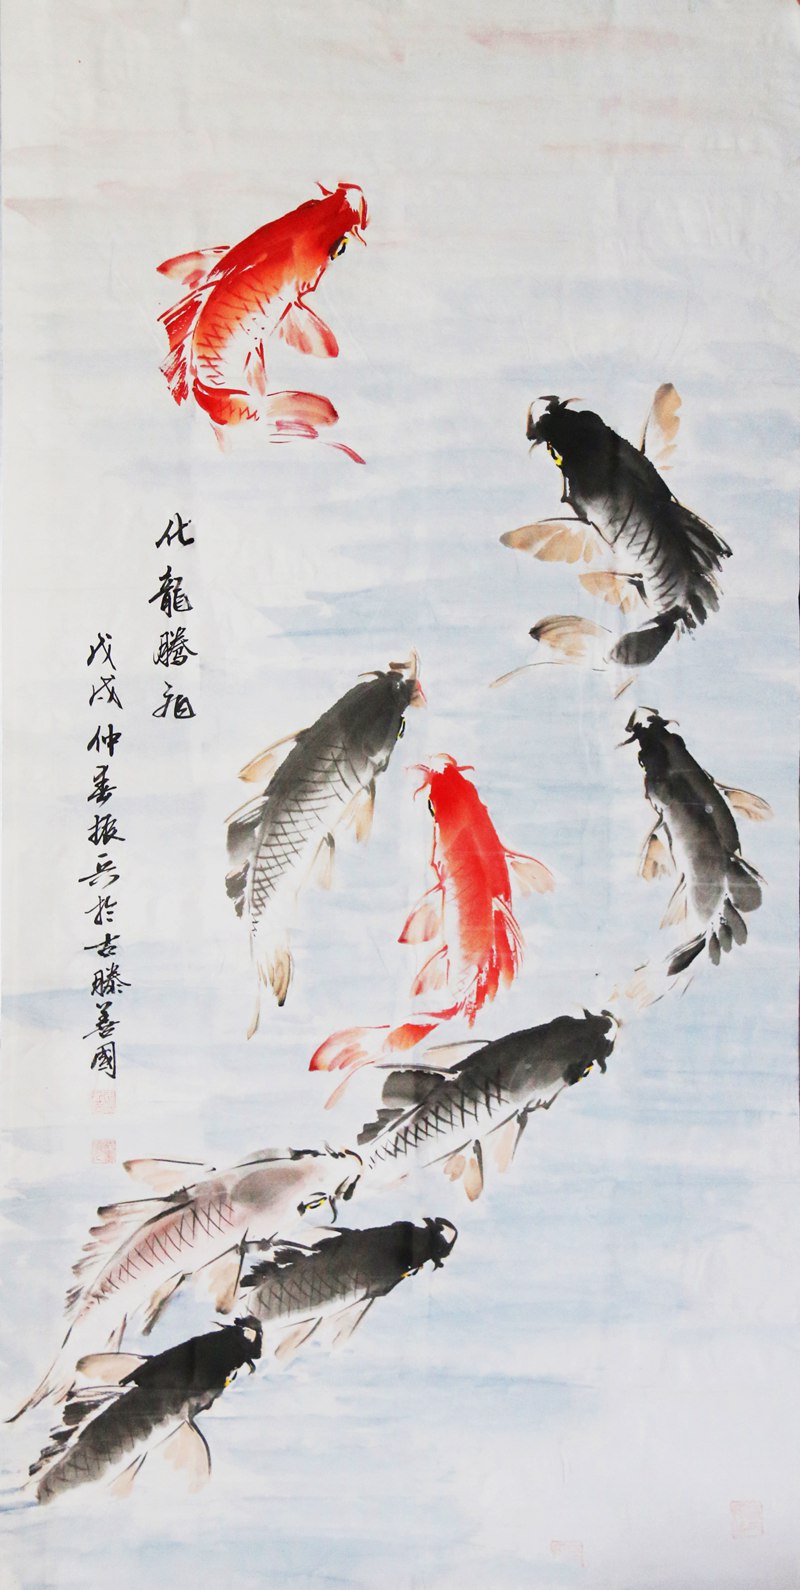 化龍騰飛
戊戌仲春振兵於古滕善國